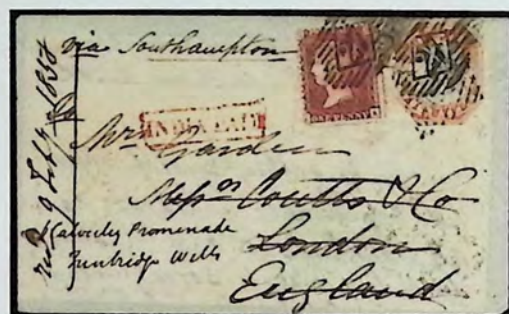 via Southampton
INDIA PAID
Mrs Garden
Messrs Coutts & Co
London
England
Calverley Promenade
Tunbridge Wells
9 Feby 1858
ONE PENNY